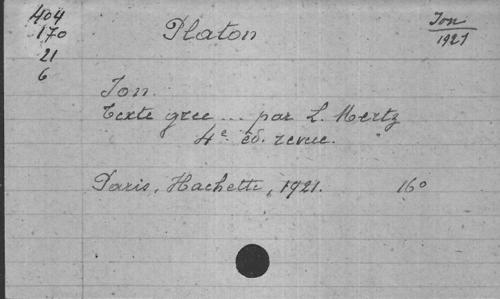 404
170
21
6
Platon
Ion
1921
Ion.
Texte grec ... par L. Mertz
4e éd. revue.
Paris, Hachette, 1921. 16o